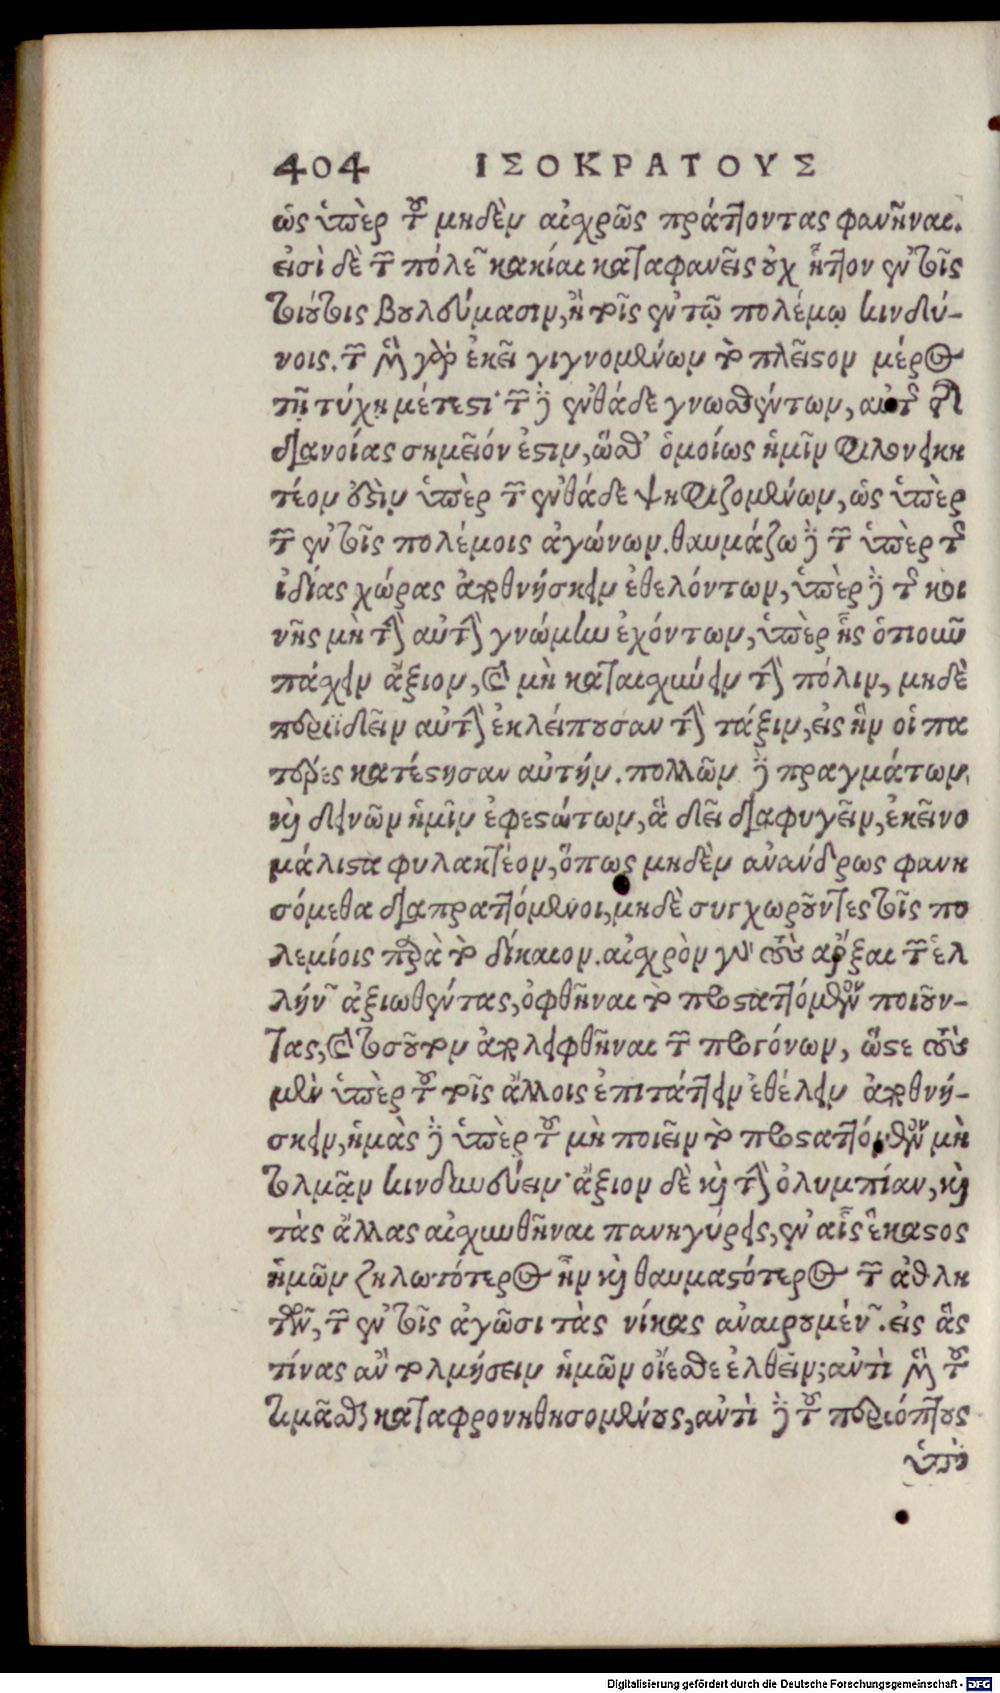 404 ΙΣΟΚΡΑΤΟΥΣ
ὡς ὑπὲρ τοῦ μηδὲν αἰσχρῶς πράττοντας φανῆναι.
εἰσὶ δὲ τῶν πόλεων κακίαι καταφανεῖς οὐχ ἧττον ἐν τοῖς
τοιούτοις βουλεύμασιν, ἢ τοῖς ἐν τῷ πολέμῳ κινδύ-
νοις. τῶν μὲν γὰρ ἐκεῖ γιγνομένων τὸ πλεῖστον μέρος
τῇ τύχῃ μέτεστι· τῶν δ' ἐνθάδε γνωσθέντων, αὐτῆς τῆς
διανοίας σημεῖόν ἐστιν, ὥσθ' ὁμοίως ἡμῖν φιλονεικη
τέον ἐστὶν ὑπὲρ τῶν ἐνθάδε ψηφιζομένων, ὡς ὑπὲρ
τῶν ἐν τοῖς πολέμοις ἀγώνων. θαυμάζω δὲ τῶν ὑπὲρ τῆς
ἰδίας χώρας ἀποθνήσκειν ἐθελόντων, ὑπὲρ δὲ τῆς κοι
νῆς μὴ τὴν αὐτὴν γνώμην ἐχόντων, ὑπὲρ ἧς ὁτιοῦν
πάσχειν ἄξιον, καὶ μὴ καταισχύνειν τὴν πόλιν, μηδὲ
περιϊδεῖν αὐτὴν ἐκλείπουσαν τὴν τάξιν, εἰς ἣν οἱ πα
τέρες κατέστησαν αὐτήν. πολλῶν δὲ πραγμάτων,
καὶ δεινῶν ἡμῖν ἐφεστώτων, ἃ δεῖ διαφυγεῖν, ἐκεῖνο
μάλιστα φυλακτέον, ὅπως μηδὲν ἀνάνδρως φανη
σόμεθα διαπραττόμενοι, μηδὲ συγχωροῦντες τοῖς πο
λεμίοις παρὰ τὸ δίκαιον. αἰσχρὸν γὰρ τοὺς ἄρξαι τῶν ἑλ
λήνων ἀξιωθέντας, ὀφθῆναι τὸ προσταττόμενον ποιοῦν-
τας, καὶ τοσοῦτον ἀπολειφθῆναι τῶν προγόνων, ὥστε τοὺς
μὲν ὑπὲρ τοῦ τοῖς ἄλλοις ἐπιτάττειν ἐθέλειν ἀποθνή-
σκειν, ἡμᾶς δὲ ὑπὲρ τοῦ μὴ ποιεῖν τὸ προσταττόμενον μὴ
τολμᾷν κινδυνεύειν· ἄξιον δὲ καὶ τὴν ὀλυμπίαν, καὶ
τὰς ἄλλας αἰσχυνθῆναι πανηγύρεις, ἐν αἷς ἕκαστος
ἡμῶν ζηλωτότερος ἦν καὶ θαυμαστότερος τῶν ἀθλη
τῶν, τῶν ἐν τοῖς ἀγῶσι τὰς νίκας ἀναιρουμένων. εἰς ἃς
τίνας ἂν τολμήσειν ἡμῶν οἴεσθε ἐλθεῖν; ἀντὶ μὲν τοῦ
τιμᾶσθαι καταφρονηθησομένους, ἀντὶ δὲ τοῦ περιόπτους
ὑπὸ
Digitalisierung gefördert durch die Deutsche Forschungsgemeinschaft - DFG